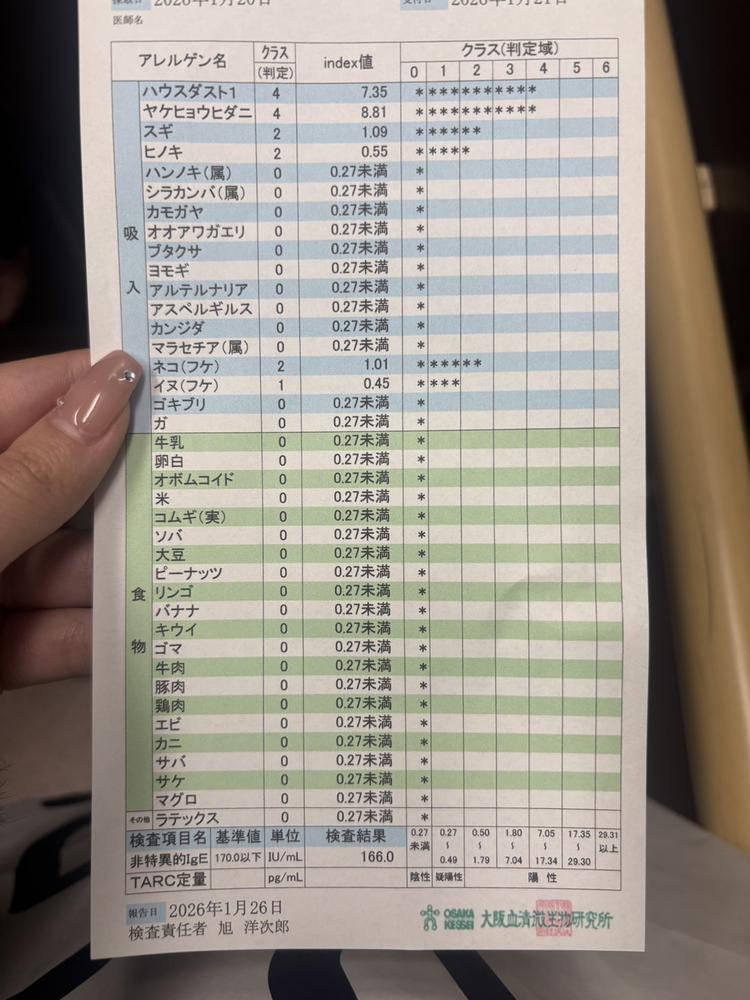 2026年1月20日 2026年1月21日
医師名
アレルゲン名 クラス(判定) index値 クラス(判定域)
0 1 2 3 4 5 6
吸入
ハウスダスト1 4 7.35 ************
ヤケヒョウヒダニ 4 8.81 ************
スギ 2 1.09 *******
ヒノキ 2 0.55 ******
ハンノキ(属) 0 0.27未満 *
シラカンバ(属) 0 0.27未満 *
カモガヤ 0 0.27未満 *
オオアワガエリ 0 0.27未満 *
ブタクサ 0 0.27未満 *
ヨモギ 0 0.27未満 *
アルテルナリア 0 0.27未満 *
アスペルギルス 0 0.27未満 *
カンジダ 0 0.27未満 *
マラセチア(属) 0 0.27未満 *
ネコ(フケ) 2 1.01 *******
イヌ(フケ) 1 0.45 *****
ゴキブリ 0 0.27未満 *
ガ 0 0.27未満 *
食物
牛乳 0 0.27未満 *
卵白 0 0.27未満 *
オボムコイド 0 0.27未満 *
米 0 0.27未満 *
コムギ(実) 0 0.27未満 *
ソバ 0 0.27未満 *
大豆 0 0.27未満 *
ピーナッツ 0 0.27未満 *
リンゴ 0 0.27未満 *
バナナ 0 0.27未満 *
キウイ 0 0.27未満 *
ゴマ 0 0.27未満 *
牛肉 0 0.27未満 *
豚肉 0 0.27未満 *
鶏肉 0 0.27未満 *
エビ 0 0.27未満 *
カニ 0 0.27未満 *
サバ 0 0.27未満 *
サケ 0 0.27未満 *
マグロ 0 0.27未満 *
その他 ラテックス 0 0.27未満 *
検査項目名 基準値 単位 検査結果 0.27未満 0.27~0.49 0.50~1.79 1.80~7.04 7.05~17.34 17.35~29.30 29.31以上
非特異的IgE 170.0以下 IU/mL 166.0
TARC定量 pg/mL 陰性 疑陽性 陽性
報告日 2026年1月26日
検査責任者 旭 洋次郎
OSAKA KESSEI 大阪血清微生物研究所